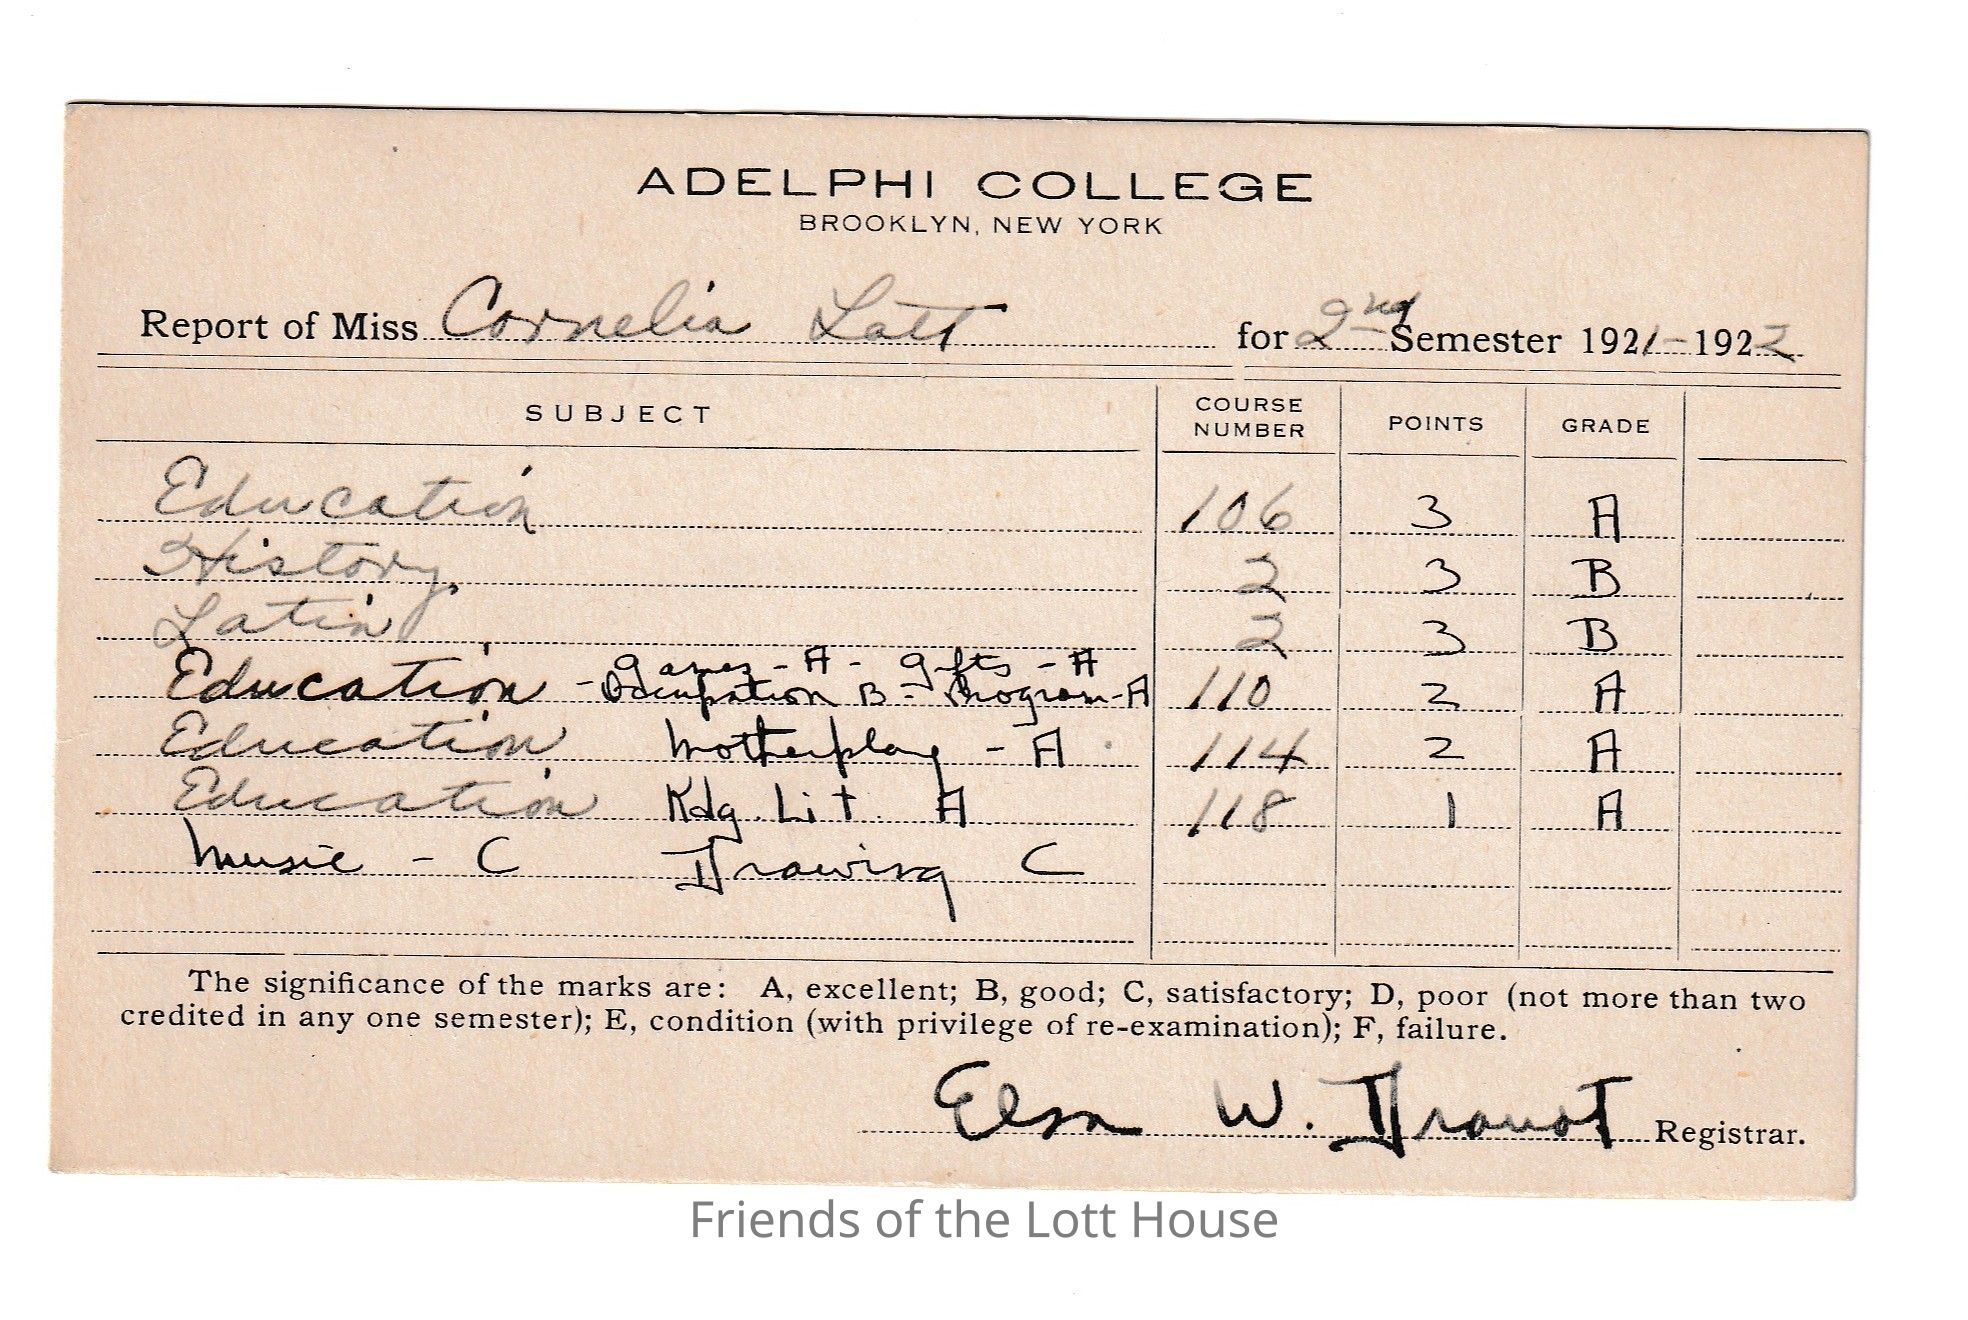 ADELPHI COLLEGE
BROOKLYN, NEW YORK
Report of Miss Cornelia Lott for 2nd Semester 1921-1922
SUBJECT COURSE NUMBER POINTS GRADE
Education 106 3 A
History 2 3 B
Latin 2 3 B
Games - A - Gifts - A
Education - Occupation B - Program - A 110 2 A
Education Motherplay - A 114 2 A
Education Kdg. Lit. A 118 1 A
Music - C Drawing C
The significance of the marks are: A, excellent; B, good; C, satisfactory; D, poor (not more than two
credited in any one semester); E, condition (with privilege of re-examination); F, failure.
Elsa W. Registrar.
Friends of the Lott House